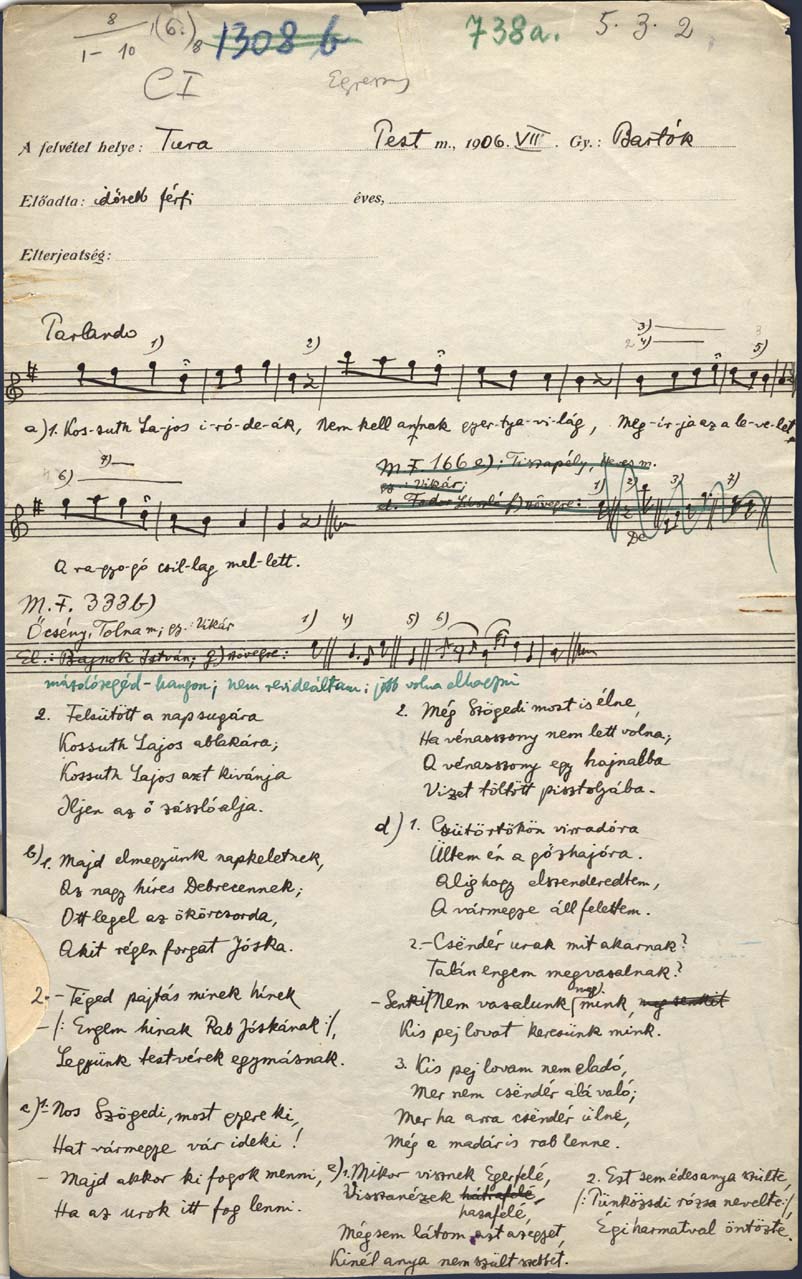 8
1 – 10
(6.)
8
1308 b
738a.
5. 3. 2
CI
Egressy
A felvétel helye: Tura Pest m., 1906. VII. Gy.: Bartók
Előadta: idősebb férfi éves,
Elterjedtség:
Parlando
1) 2) 3) 4) 5)
a) 1. Kos-suth La-jos i-ró-de-ák, Nem kell annak gyer-tya-vi-lág, Meg-ír-ja az a le-ve-let
6) 7)
M.F. 166 e); Tiszapély, Heves m.
gy: Vikár;
el. Fodor László f) szövegre: 1) 2) 3) 7)
A ra-gyo-gó csil-lag mel-lett.
M.F. 333 b)
Őcsény, Tolna m; gy. Vikár
El.: Bajnok István; g) szövegre: 1) 4) 5) 6)
másolósegéd-hangon; nem revideáltam; jobb volna elhagyni
2. Felsütött a nap sugára
Kossuth Lajos ablakára;
Kossuth Lajos azt kivánja
Iljen az ő zászlóalja.
b) 1. Majd elmegyünk napkeletnek,
Az nagy híres Debrecennek;
Ott legel az ökörcsorda,
Akit régen forgat Jóska.
2. – Téged pajtás minek hínek
– /: Engem hínak Rab Jóskának :/,
Legyünk testvérek egymásnak.
c) 1. Nos Szögedi, most gyere ki,
Hat vármegye vár ideki!
– Majd akkor ki fogok menni,
Ha az urok itt fog lenni.
2. Még Szögedi most is élne,
Ha vénasszony nem lett volna;
A vénasszony egy hajnalba
Vizet töltött pisztolyába.
d) 1. Csütörtökön virradóra
Ültem én a gőzhajóra.
Alighogy elszenderedtem,
A vármegye áll felettem.
2. – Csëndér urak mit akarnak?
Talán engem megvasalnak?
– Senkit Nem vasalunk meg mink, meg senkit
Kis pej lovat keresünk mink.
3. Kis pej lovam nem eladó,
Mer nem csëndér alá való;
Mer ha arra csëndér ülne,
Még a madár is rab lenne.
e) 1. Mikor visznek Egerfelé,
Visszanézek hátrafelé,
hazafelé,
Mégsem látom azt a szépet,
Kinél anya nem szült szebbet.
2. Ezt sem édesanya szülte,
/: Pünközsdi rózsa nevelte :/,
Égi harmatval öntözte.